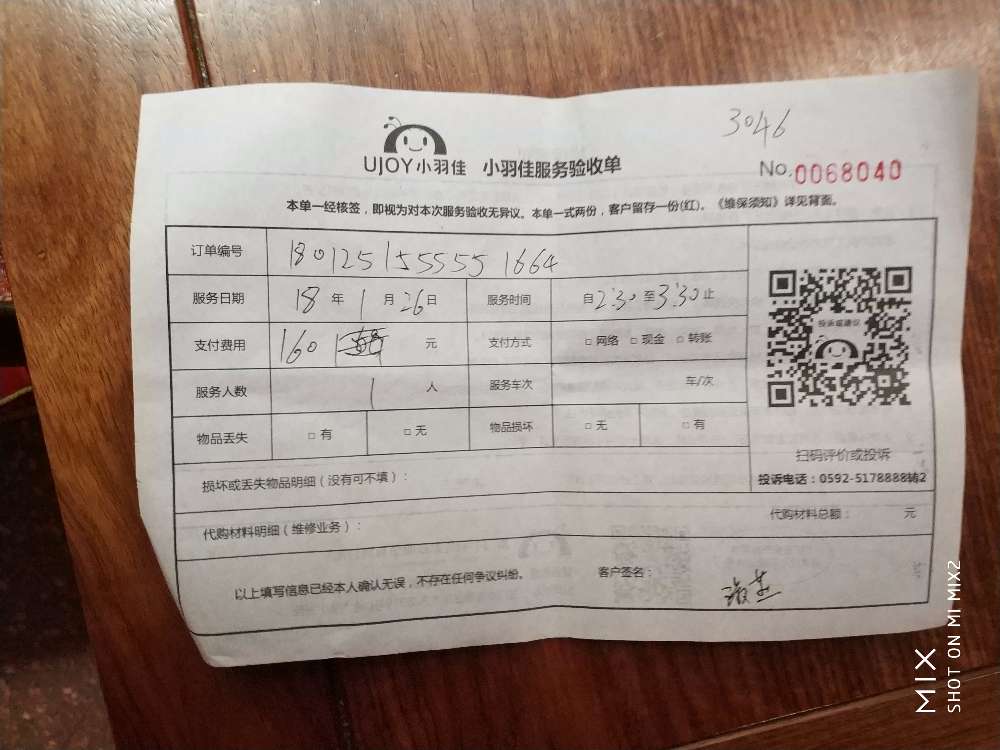 3046
UJOY小羽佳 小羽佳服务验收单 No.0068040
本单一经核签，即视为对本次服务验收无异议。本单一式两份，客户留存一份(红)。《维保须知》详见背面。
订单编号 180125155555 1664
服务日期 18年1月26日 服务时间 自2:30至3:30止
投诉或建议
支付费用 160 元 支付方式 □网络 □现金 □转账
服务人数 1人 服务车次 车/次
物品丢失 □有 □无 物品损坏 □无 □有
扫码评价或投诉
投诉电话：0592-5178888转2
损坏或丢失物品明细（没有可不填）：
代购材料明细（维修业务）： 代购材料总额： 元
以上填写信息已经本人确认无误，不存在任何争议纠纷。 客户签名：
MIX
SHOT ON MI MIX2